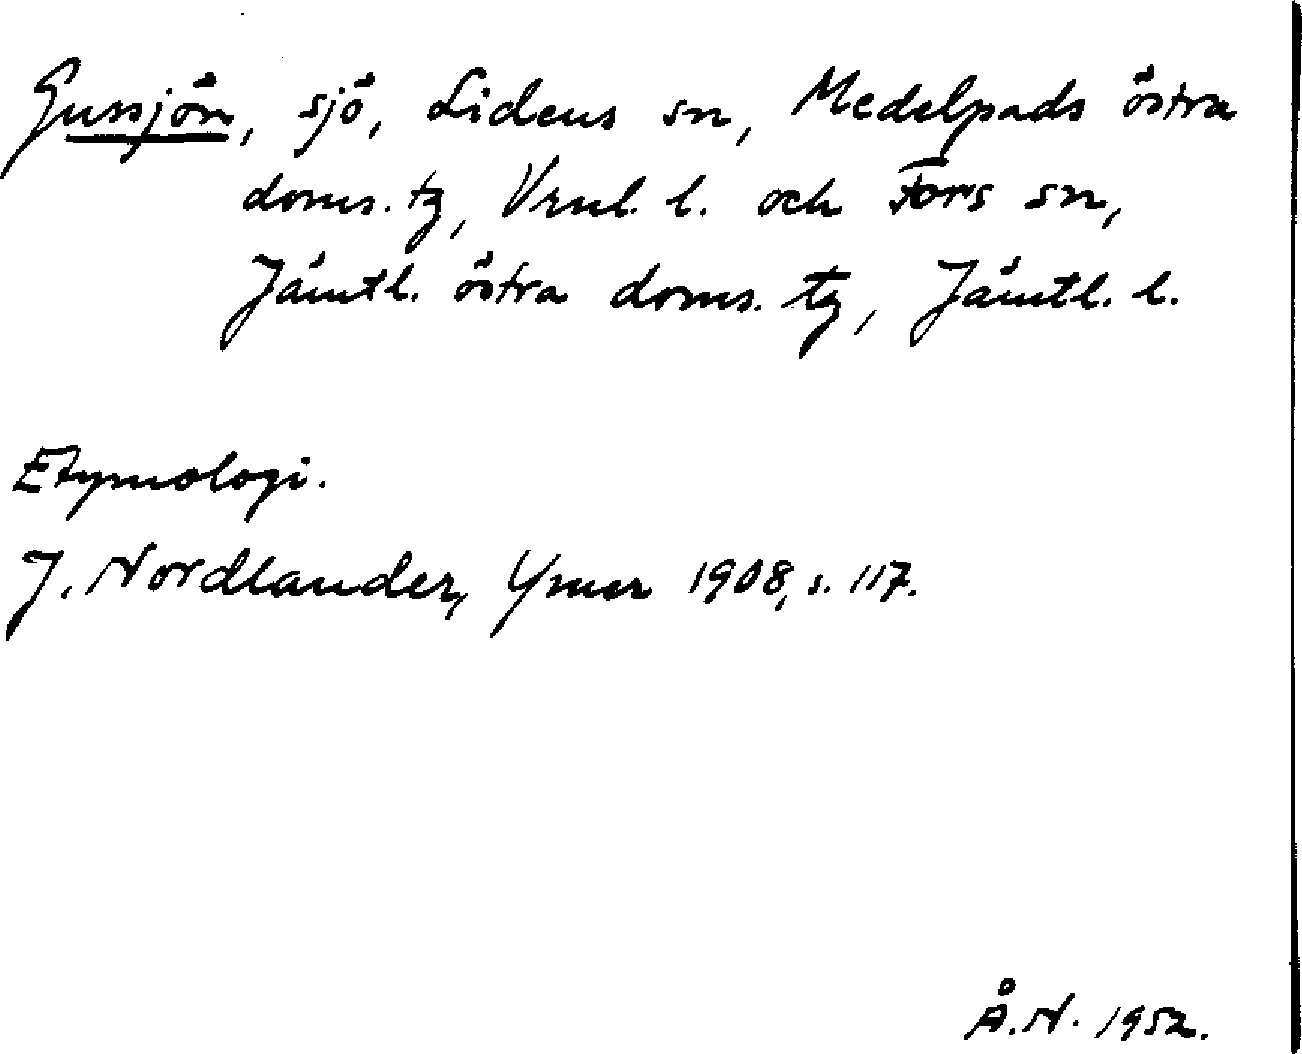 Gussjön, sjö, Lidens sn, Medelpads östra
doms. tg, Vrnl. l. och Fors sn,
Jämtl. östra doms. tg, Jämtl. l.
Etymologi.
J. Nordlander, Ymer 1908, s. 117.
Å.N. 1952.